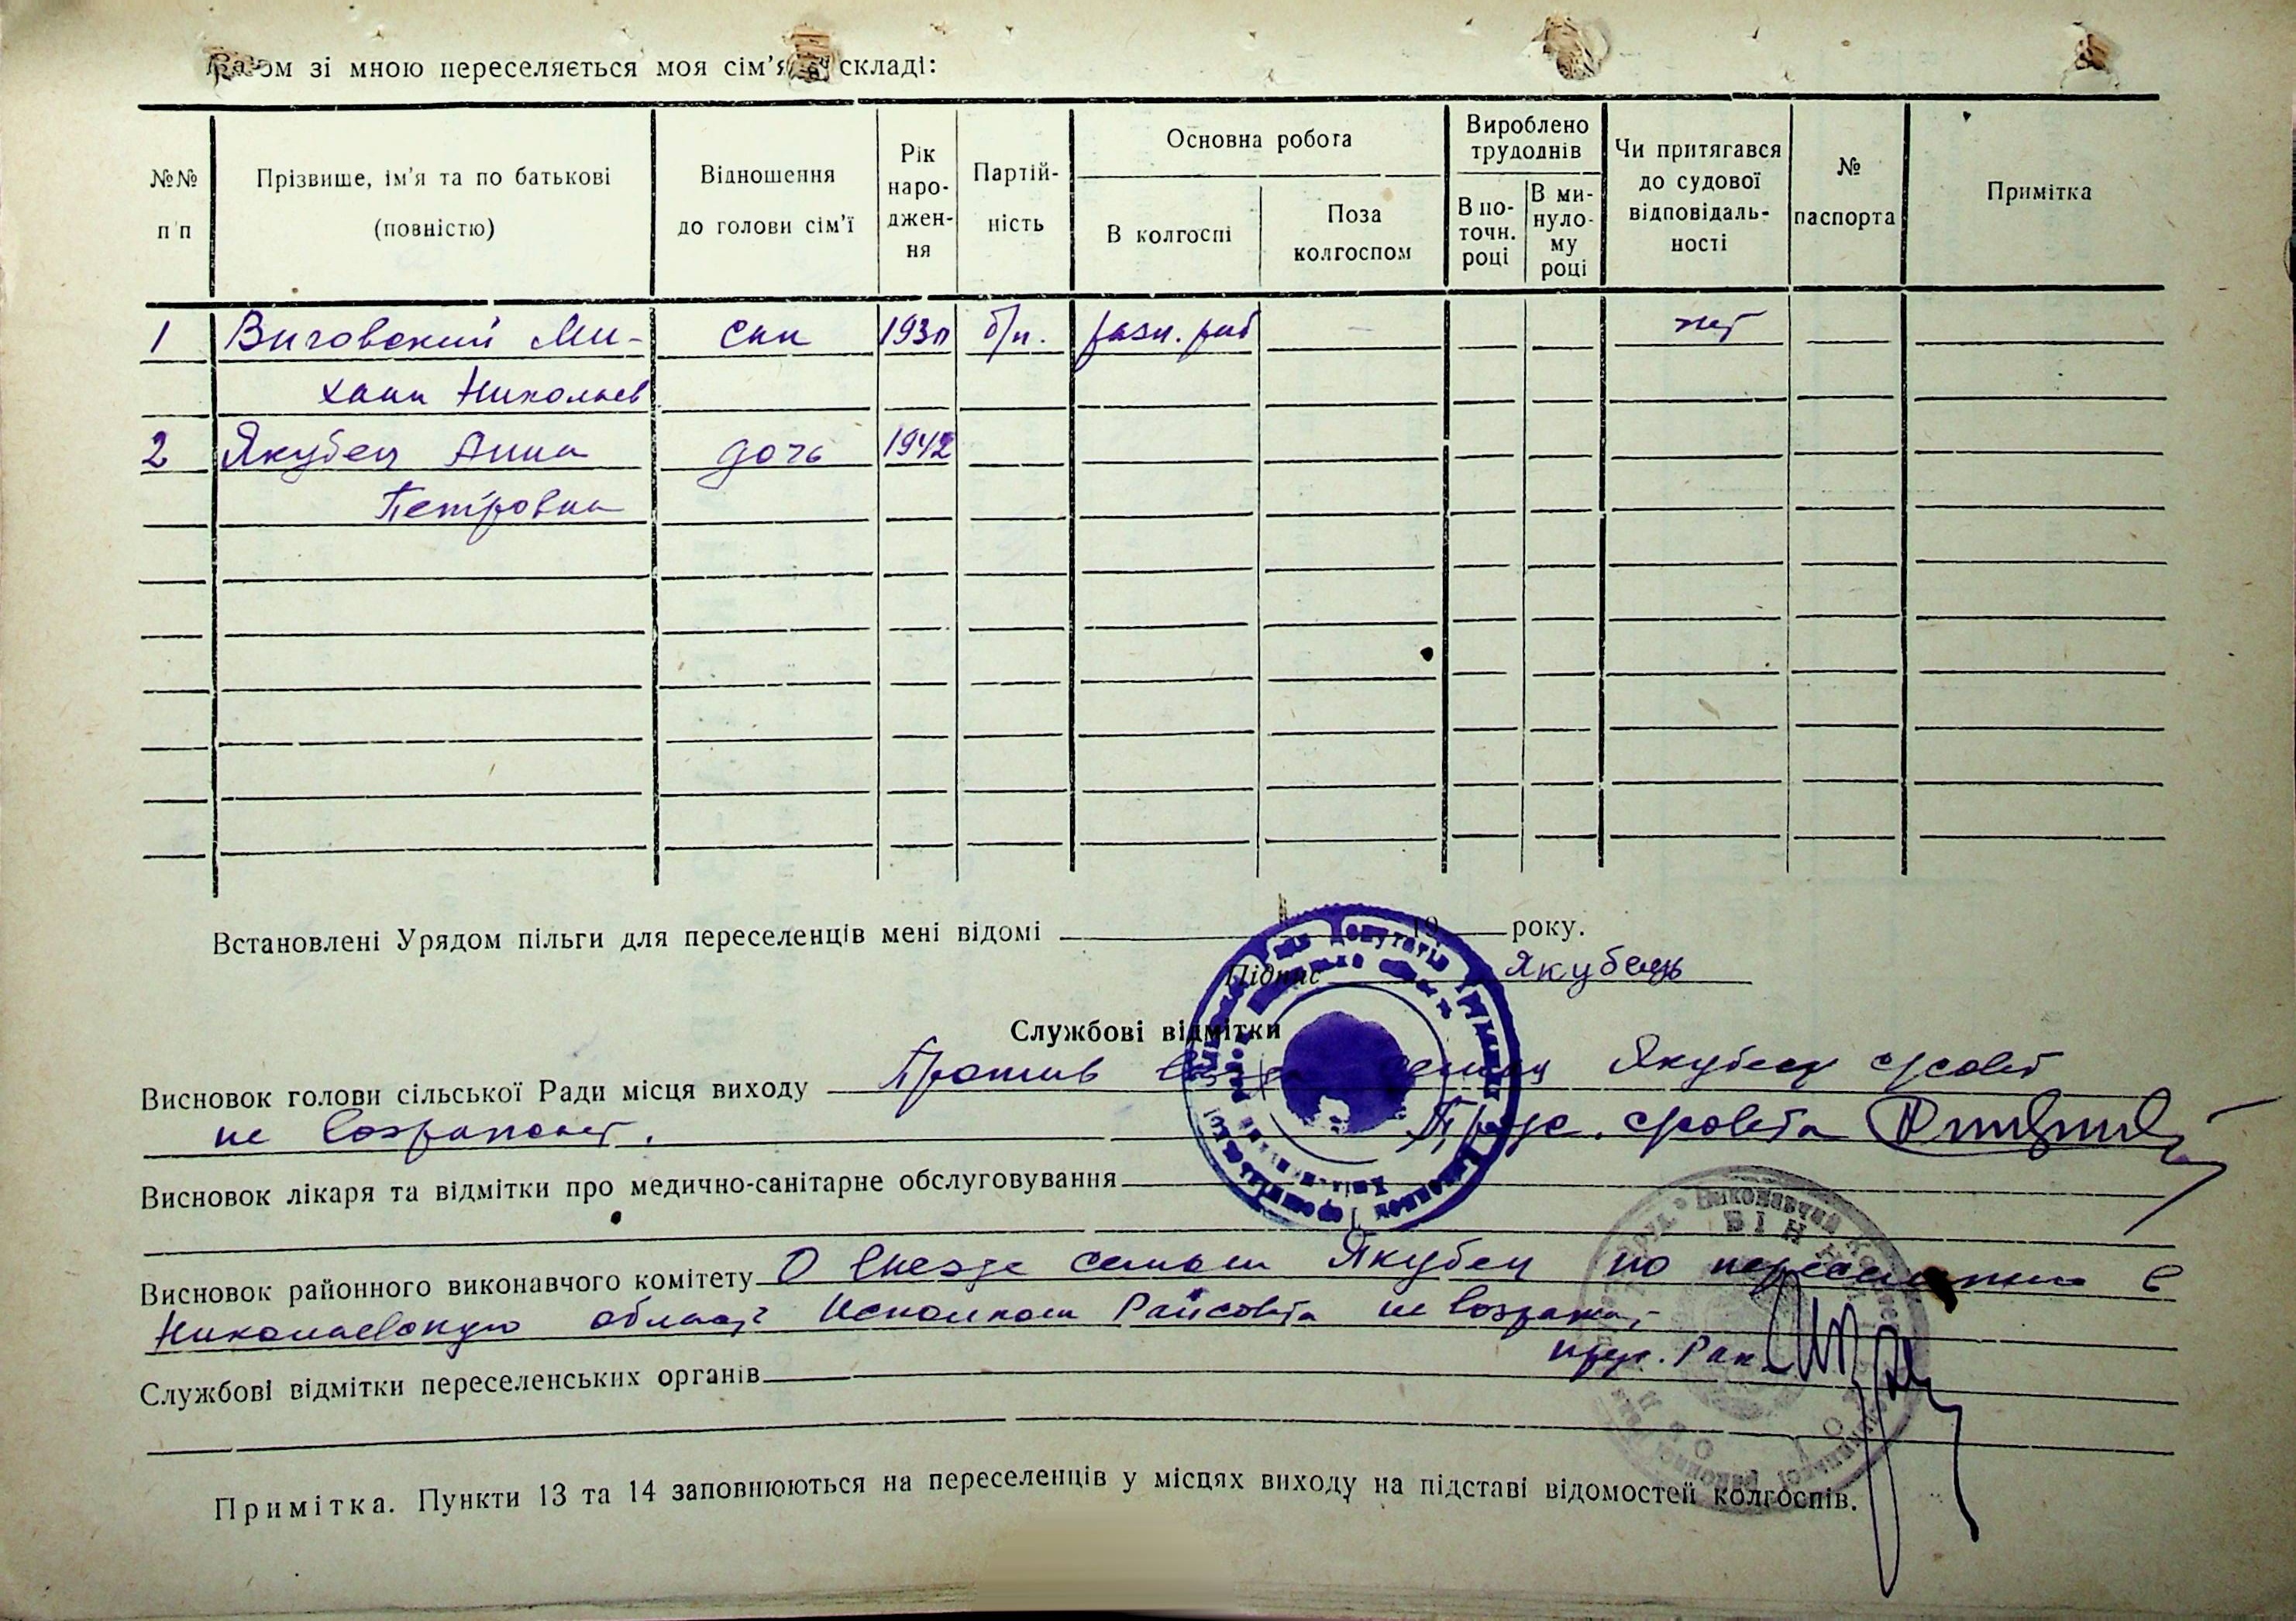 Разом зі мною переселяється моя сім'я у складі:
№№ п/п
Прізвище, ім'я та по батькові (повністю)
Відношення до голови сім'ї
Рік народжен-ня
Партій-ність
Основна робота
В колгоспі
Поза колгоспом
Вироблено трудоднів
В по-точн. році
В ми-нуло-му році
Чи притягався до судової відповідаль-ності
№ паспорта
Примітка
1 Виговский Ми- сын 1930 б/п. разн. раб — нет
хаил Николаев
2 Якубец Анна дочь 1942
Петровна
Встановлені Урядом пільги для переселенців мені відомі 19 року.
Підпис Якубець
Службові відмітки
Висновок голови сільської Ради місця виходу Против семьи Якубец с/совет
не возражает. Пред. с/совета
Висновок лікаря та відмітки про медично-санітарне обслуговування
Висновок районного виконавчого комітету О выезде семьи Якубец по переселению в
Николаевскую область Исполком Райсовета не возражает
Службові відмітки переселенських органів
Примітка. Пункти 13 та 14 заповнюються на переселенців у місцях виходу на підставі відомостей колгоспів.